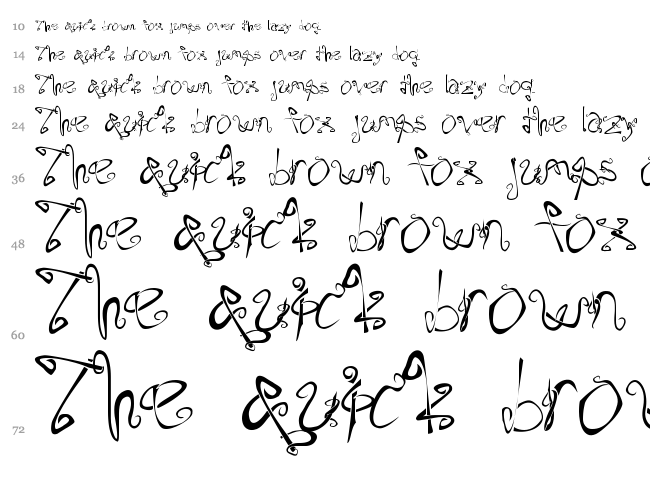 10 The quick brown fox jumps over the lazy dog
14 The quick brown fox jumps over the lazy dog
18 The quick brown fox jumps over the lazy dog
24 The quick brown fox jumps over the lazy
36 The quick brown fox jumps o
48 The quick brown fox
60 The quick brown
72 The quick brow